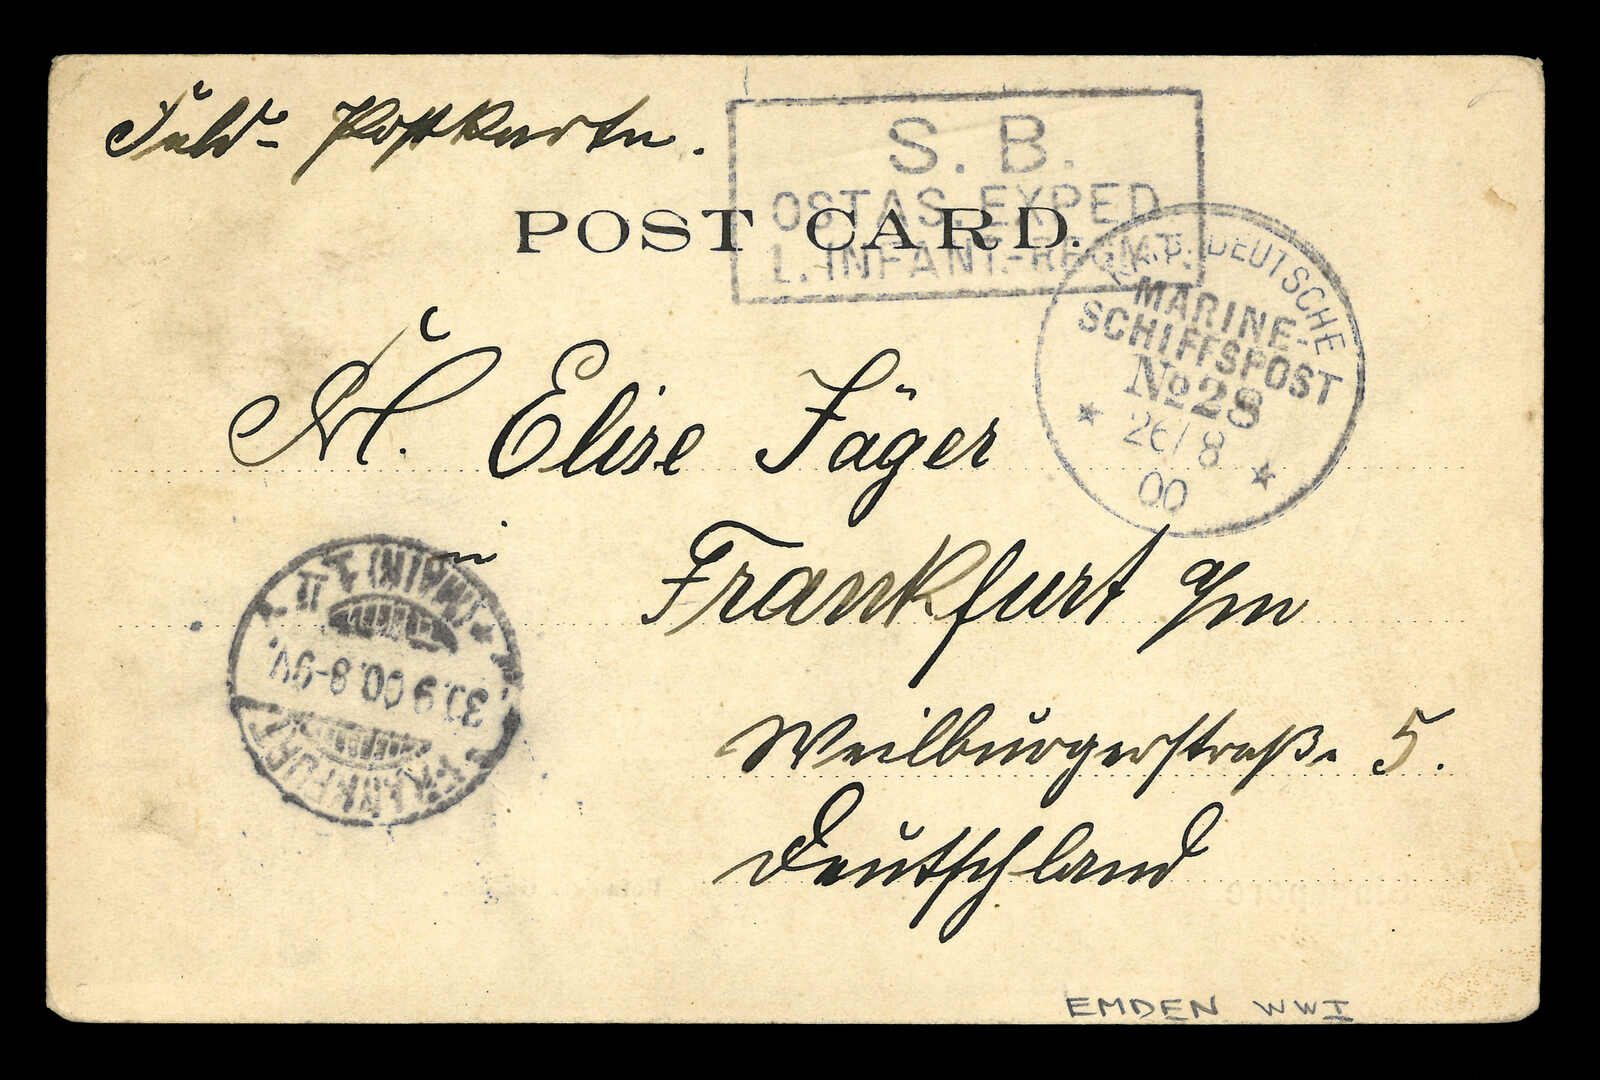 Feld-Postkarte.
S. B.
OSTAS. EXPED
1. INFANT.-REGMT.
POST CARD.
KAIS. DEUTSCHE
MARINE-
SCHIFFSPOST
No 28
26/8
00
Frl. Elise Jäger
in
Frankfurt a/m
Weilburgerstraße 5.
Deutschland
FRANKFURT
(MAIN) 1
30.9.00.8-9V.
EMDEN WWI